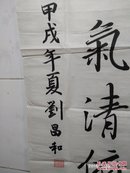 氣清
甲戌年夏劉昌和